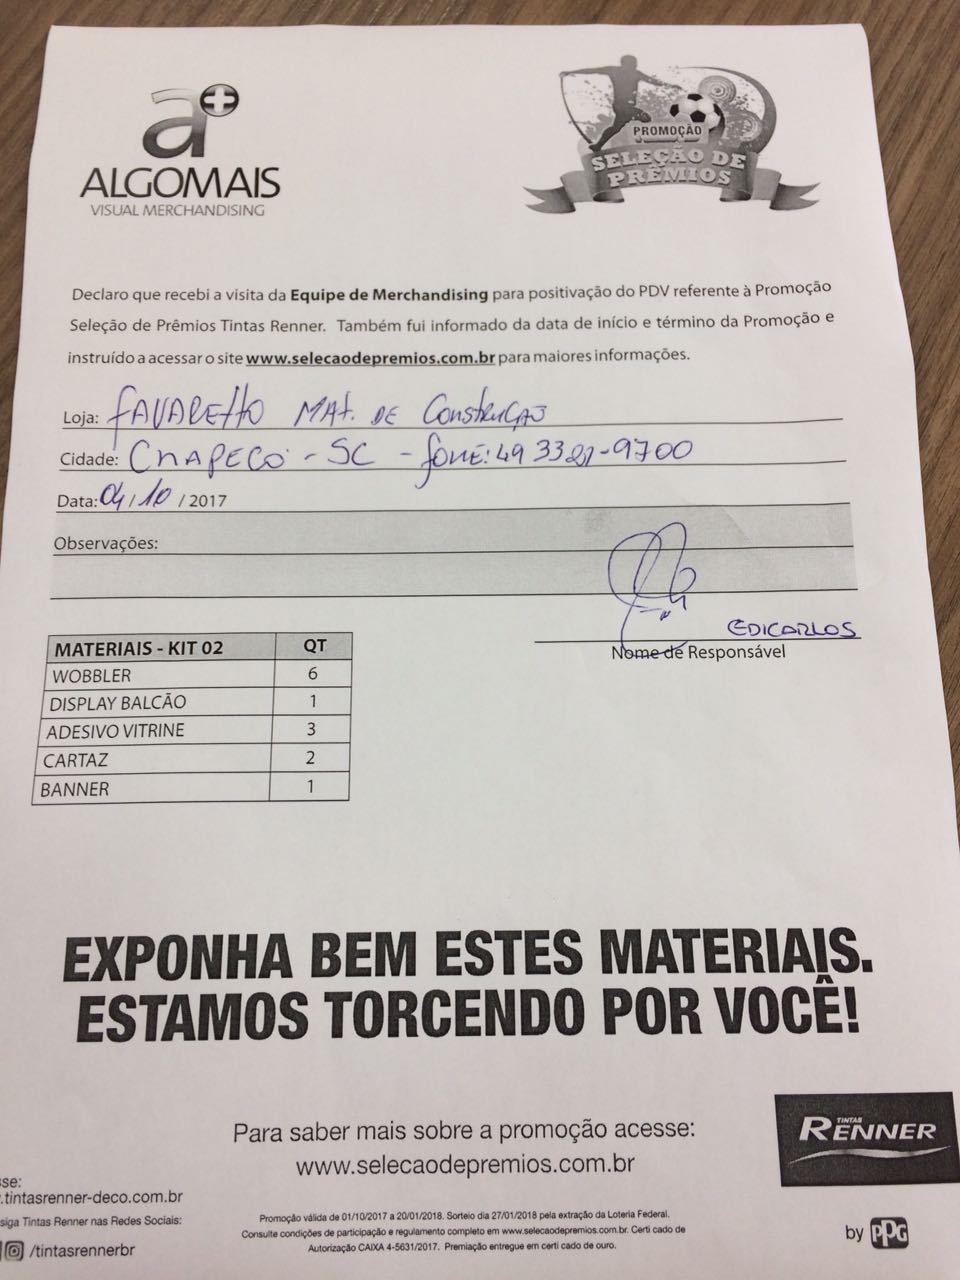 a+
ALGOMAIS
VISUAL MERCHANDISING
PROMOÇÃO
SELEÇÃO DE
PRÊMIOS
Declaro que recebi a visita da Equipe de Merchandising para positivação do PDV referente à Promoção
Seleção de Prêmios Tintas Renner. Também fui informado da data de início e término da Promoção e
instruído a acessar o site www.selecaodepremios.com.br para maiores informações.
Loja: FAVARETTO MAT. DE CONSTRUÇÃO
Cidade: CHAPECÓ - SC - FONE: 49 3321-9700
Data: 04 / 10 / 2017
Observações:
EDICARLOS
Nome de Responsável
MATERIAIS - KIT 02 QT
WOBBLER 6
DISPLAY BALCÃO 1
ADESIVO VITRINE 3
CARTAZ 2
BANNER 1
EXPONHA BEM ESTES MATERIAIS.
ESTAMOS TORCENDO POR VOCÊ!
Para saber mais sobre a promoção acesse:
www.selecaodepremios.com.br
TINTAS
RENNER
sse:
.tintasrenner-deco.com.br
siga Tintas Renner nas Redes Sociais:
/tintasrennerbr
Promoção válida de 01/10/2017 a 20/01/2018. Sorteio dia 27/01/2018 pela extração da Loteria Federal.
Consulte condições de participação e regulamento completo em www.selecaodepremios.com.br. Certi cado de
Autorização CAIXA 4-5631/2017. Premiação entregue em certi cado de ouro.
by PPG